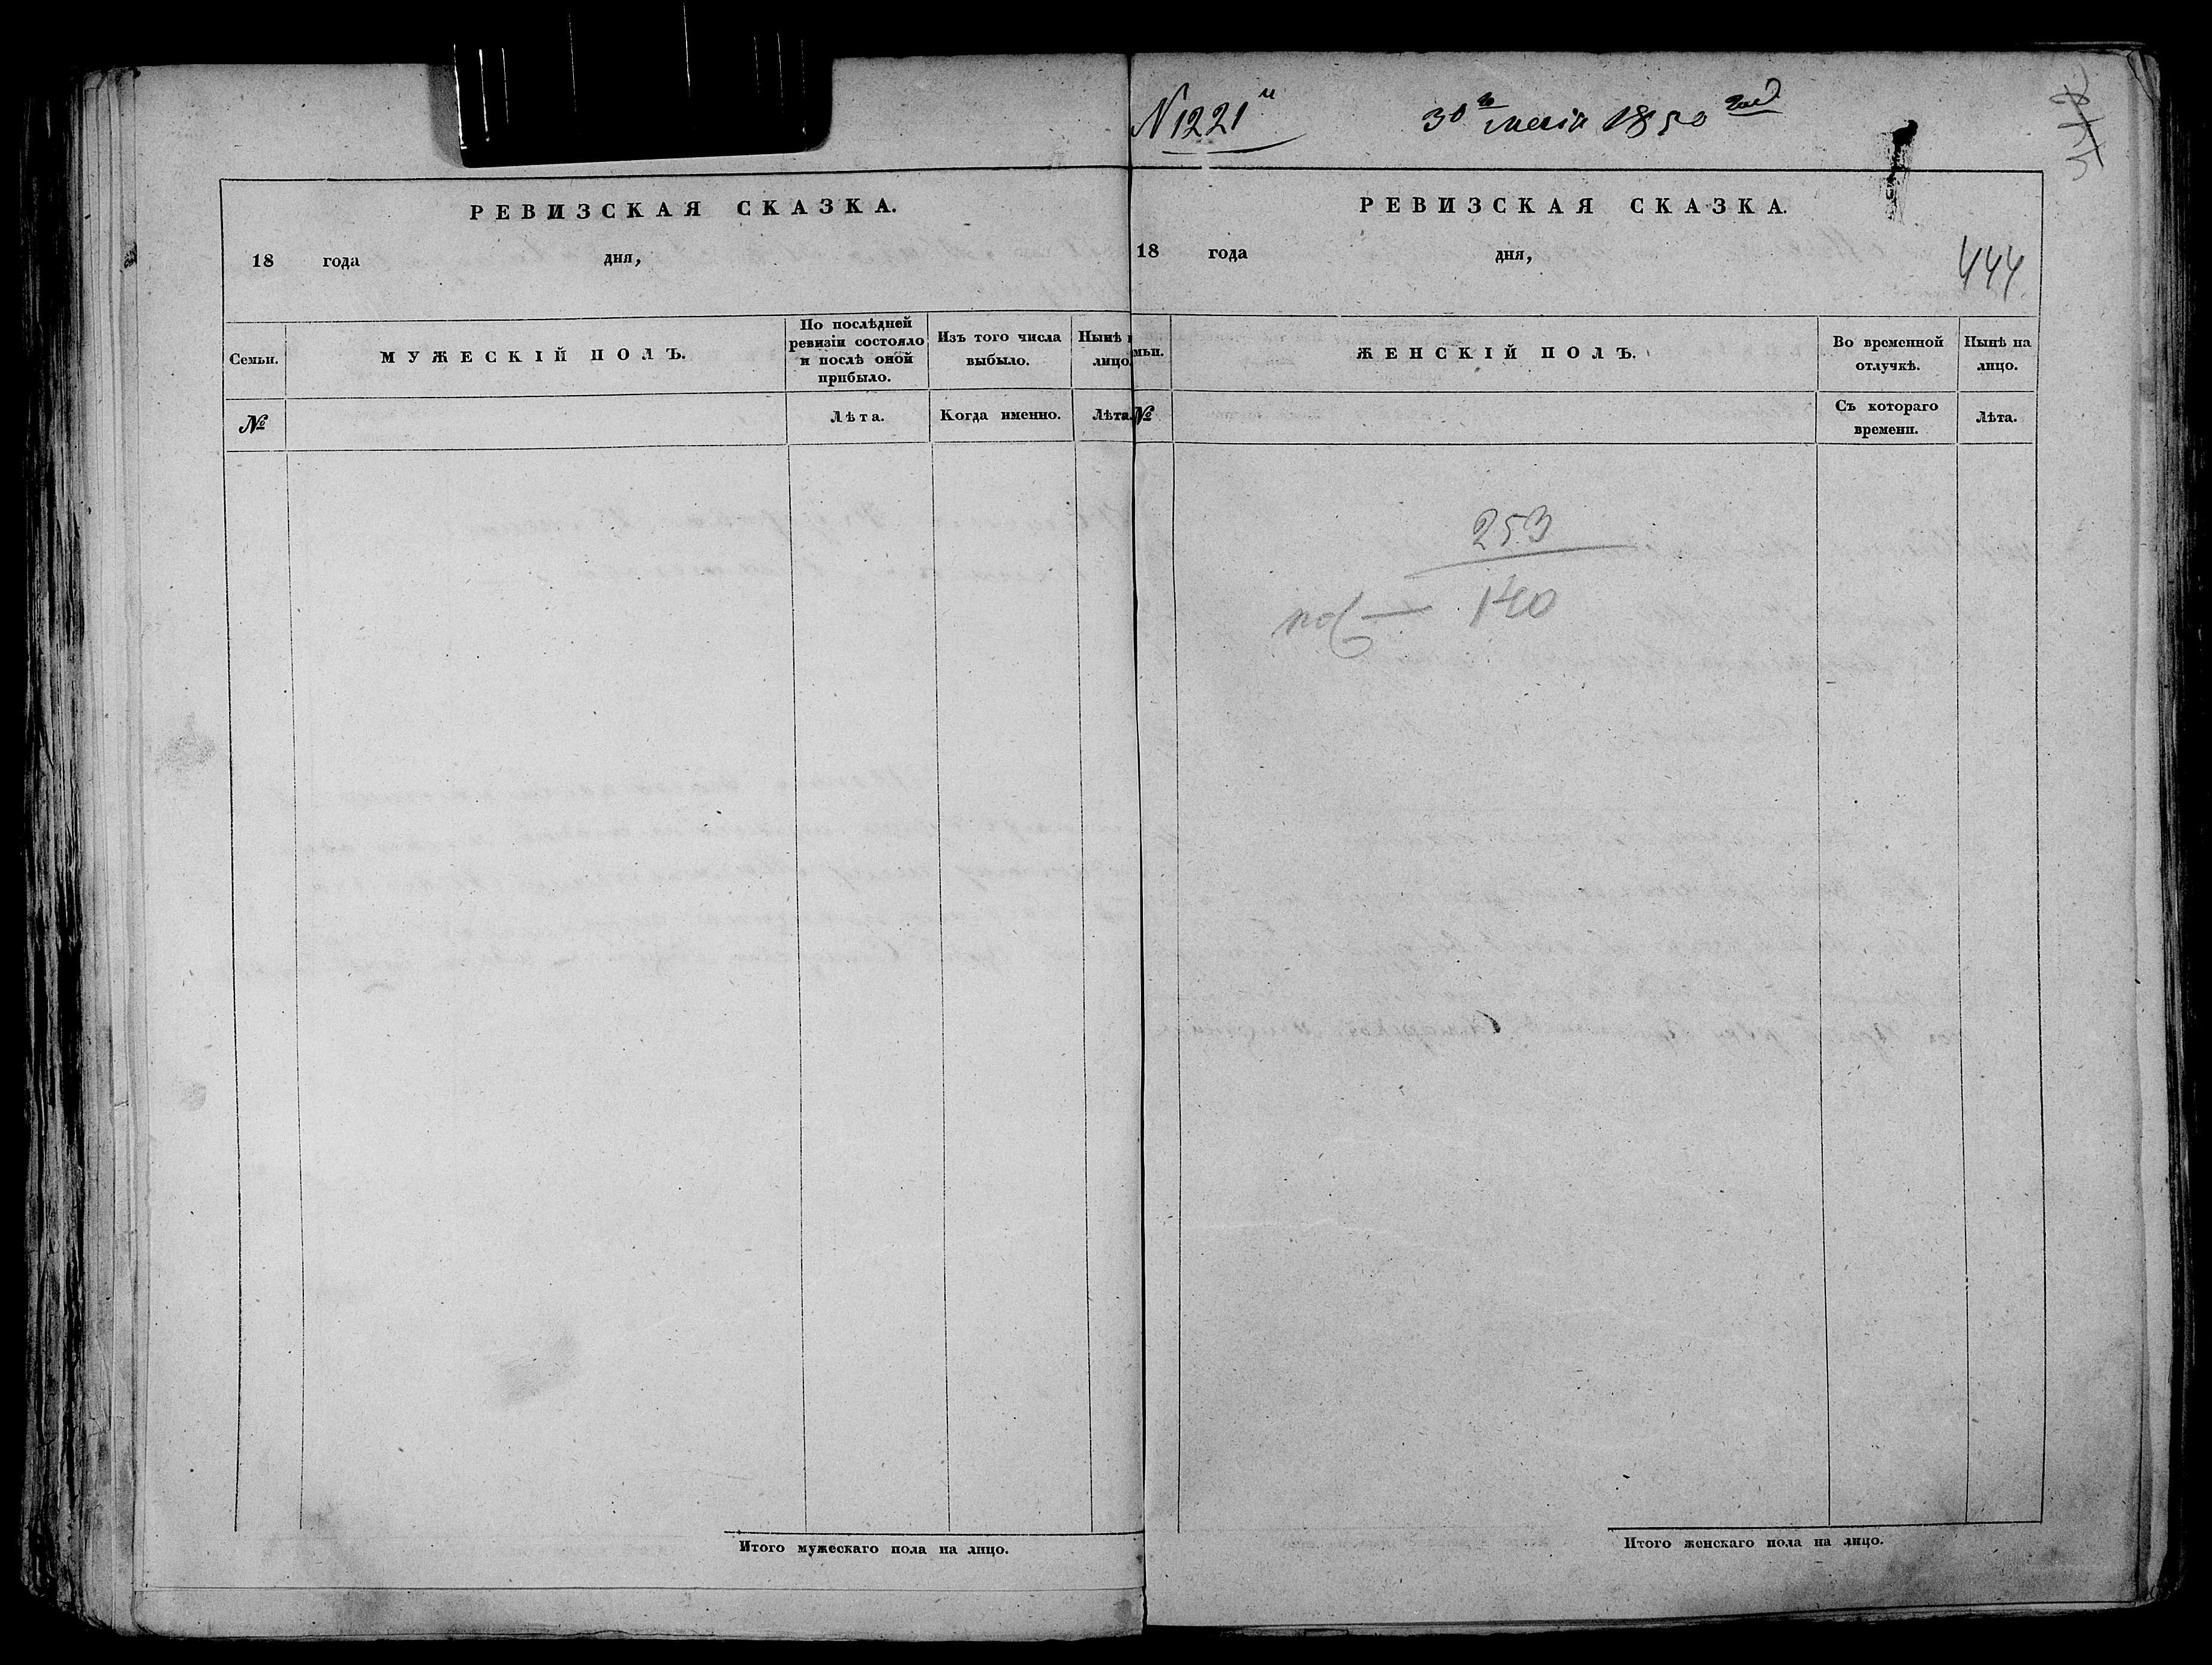 РЕВИЗСКАЯ СКАЗКА.
18 года дня,
Семьи. МУЖЕСКІЙ ПОЛЪ. По послѣдней ревизіи состояло и послѣ оной прибыло. Изъ того числа выбыло. Нынѣ лицо.
№ Лѣта. Когда именно. Лѣта.
Итого мужескаго пола на лицо.
N 1221 30го маія 1850 год
РЕВИЗСКАЯ СКАЗКА.
18 года дня,
444
мьи. ЖЕНСКІЙ ПОЛЪ. Во временной отлучкѣ. Нынѣ на лицо.
№ Съ котораго времени. Лѣта.
253
140
Итого женскаго пола на лицо.